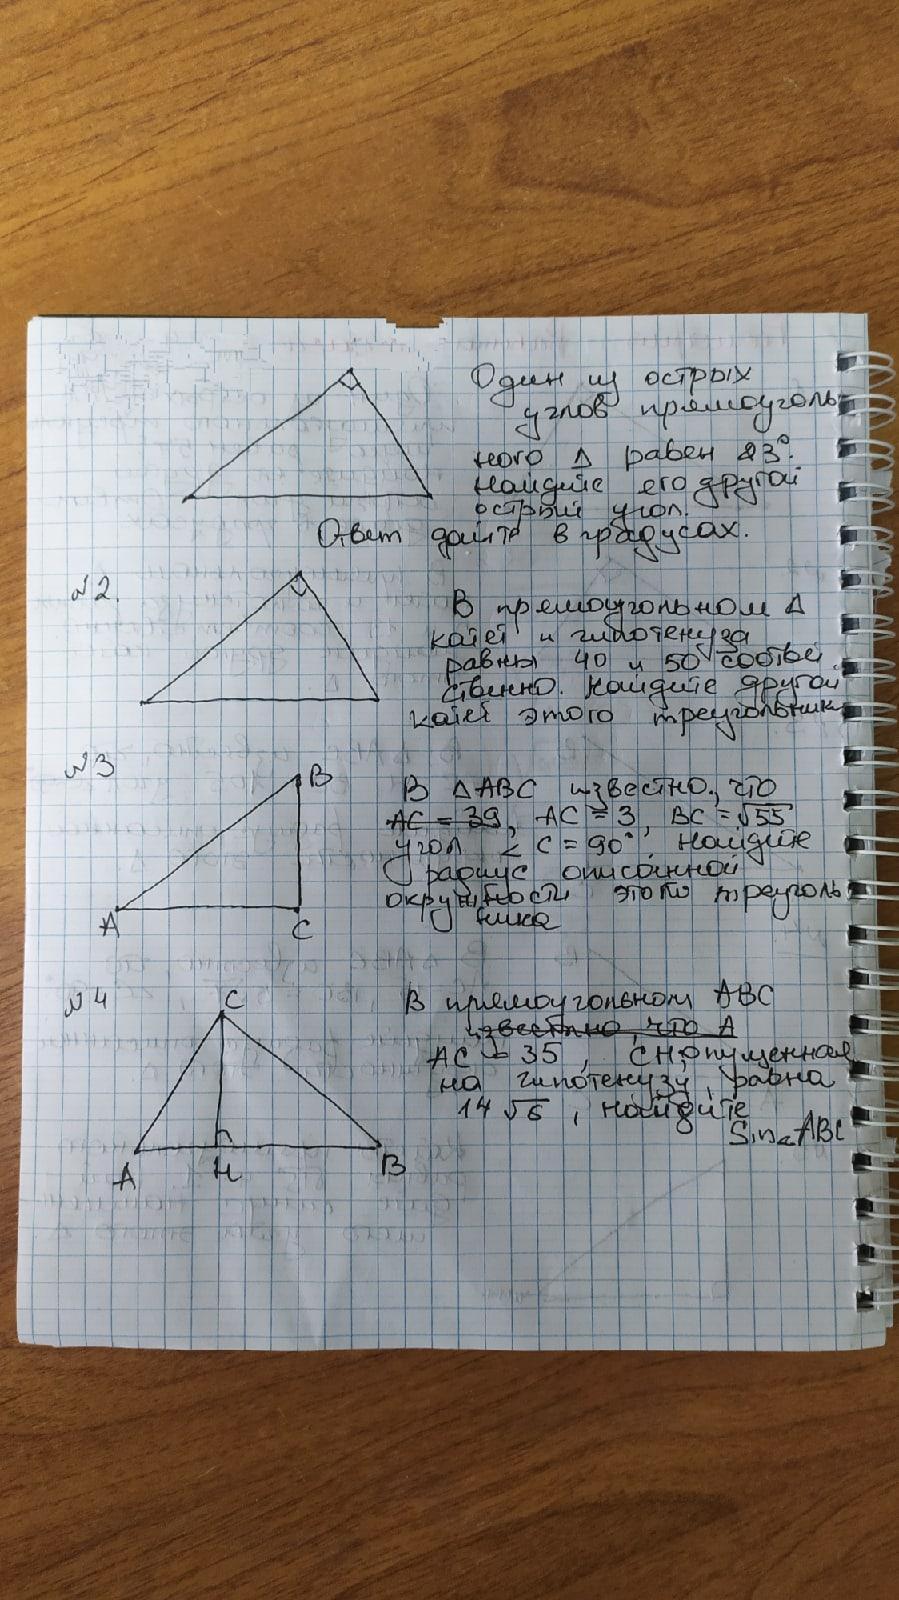 Один из острых
углов прямоуголь
ного Δ равен 23°.
Найдите его другой
острый угол.
Ответ дайте в градусах.
№2.
В прямоугольном Δ
катет и гипотенуза
равны 40 и 50 соответ
ственно. Найдите другой
катет этого треугольника
№3
B
В ΔABC известно, что
AC = 39, AC = 3, BC = √55
угол ∠C = 90°, найдите
радиус описанной
окружности этого треуголь
ника
A
C
№4
C
В прямоугольном ABC
известно, что A
AC = 35, CH, опущенная
на гипотенузу, равна
14√6, найдите
Sin∠ABC
A
H
B